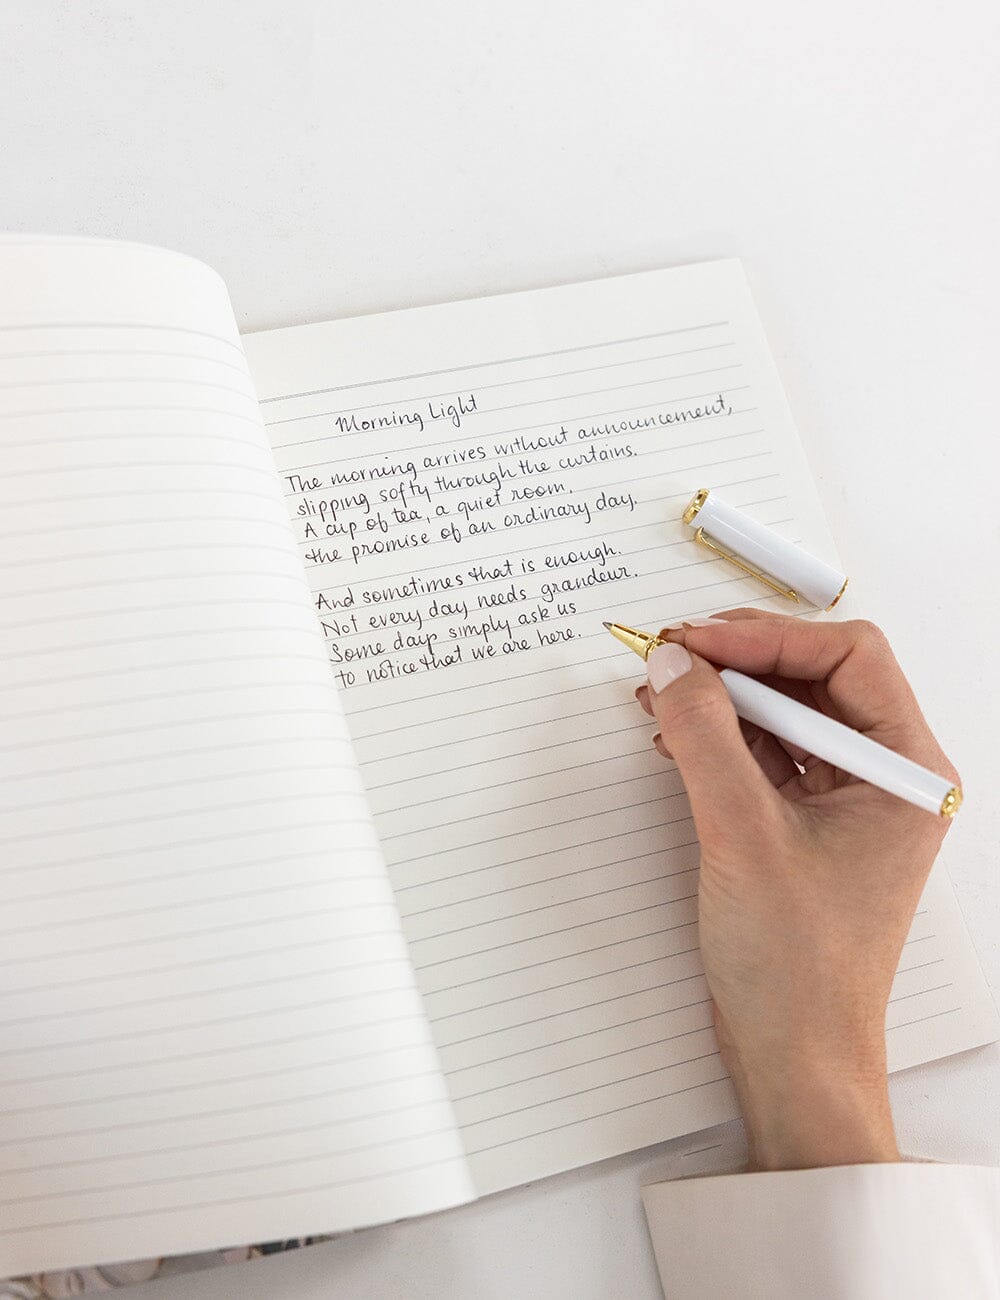 Morning Light
The morning arrives without announcement,
slipping softy through the curtains.
A cup of tea, a quiet room,
the promise of an ordinary day.
And sometimes that is enough.
Not every day needs grandeur.
Some days simply ask us
to notice that we are here.